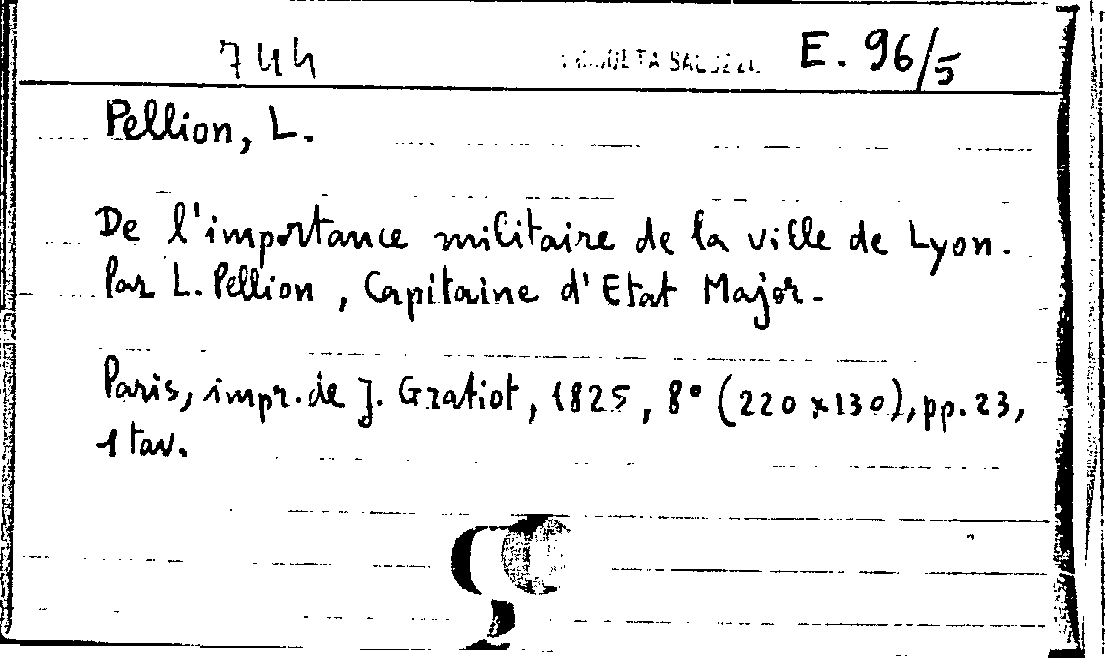 744 E. 96/5
Pellion, L.
De l'importance militaire de la ville de Lyon.
Par L. Pellion, Capitaine d'Etat Major.
Paris, impr. de J. Gratiot, 1825, 8° (220 x 130), pp. 23,
1 tav.